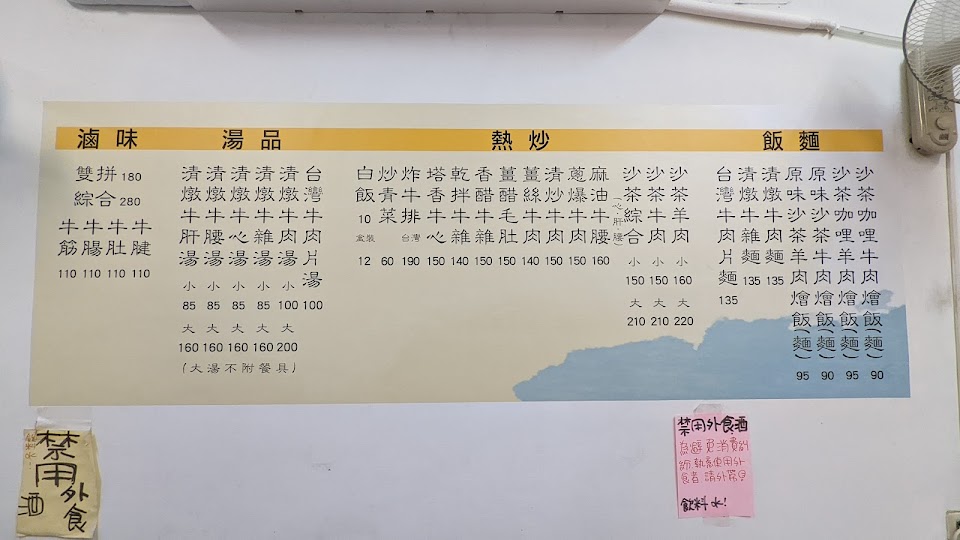 滷味
雙拼 180
綜合 280
牛筋 110
牛腸 110
牛肚 110
牛腱 110
湯品
清燉牛肝湯 小 85 大 160
清燉牛腰湯 小 85 大 160
清燉牛心湯 小 85 大 160
清燉牛雜湯 小 85 大 160
清燉牛肉湯 小 100 大 200
台灣牛肉片湯 100
(大湯不附餐具)
熱炒
白飯 10 盒裝 12
炒青菜 60
炸牛排 台灣 190
塔香牛心 150
乾拌牛雜 140
香醋牛雜 150
薑醋毛肚 150
薑絲牛肉 140
清炒牛肉 150
蔥爆牛肉 150
麻油牛腰 160
(心.肝.腰)
沙茶綜合 小 150 大 210
沙茶牛肉 小 150 大 210
沙茶羊肉 小 160 大 220
飯麵
台灣牛肉片麵 135
清燉牛雜麵 135
清燉牛肉麵 135
原味沙茶羊肉燴飯(麵) 95
原味沙茶牛肉燴飯(麵) 90
沙茶咖哩羊肉燴飯(麵) 95
沙茶咖哩牛肉燴飯(麵) 90
禁用外食
酒
禁用外食酒
為避免消費糾
紛
用外
食者請外帶
飲料水!